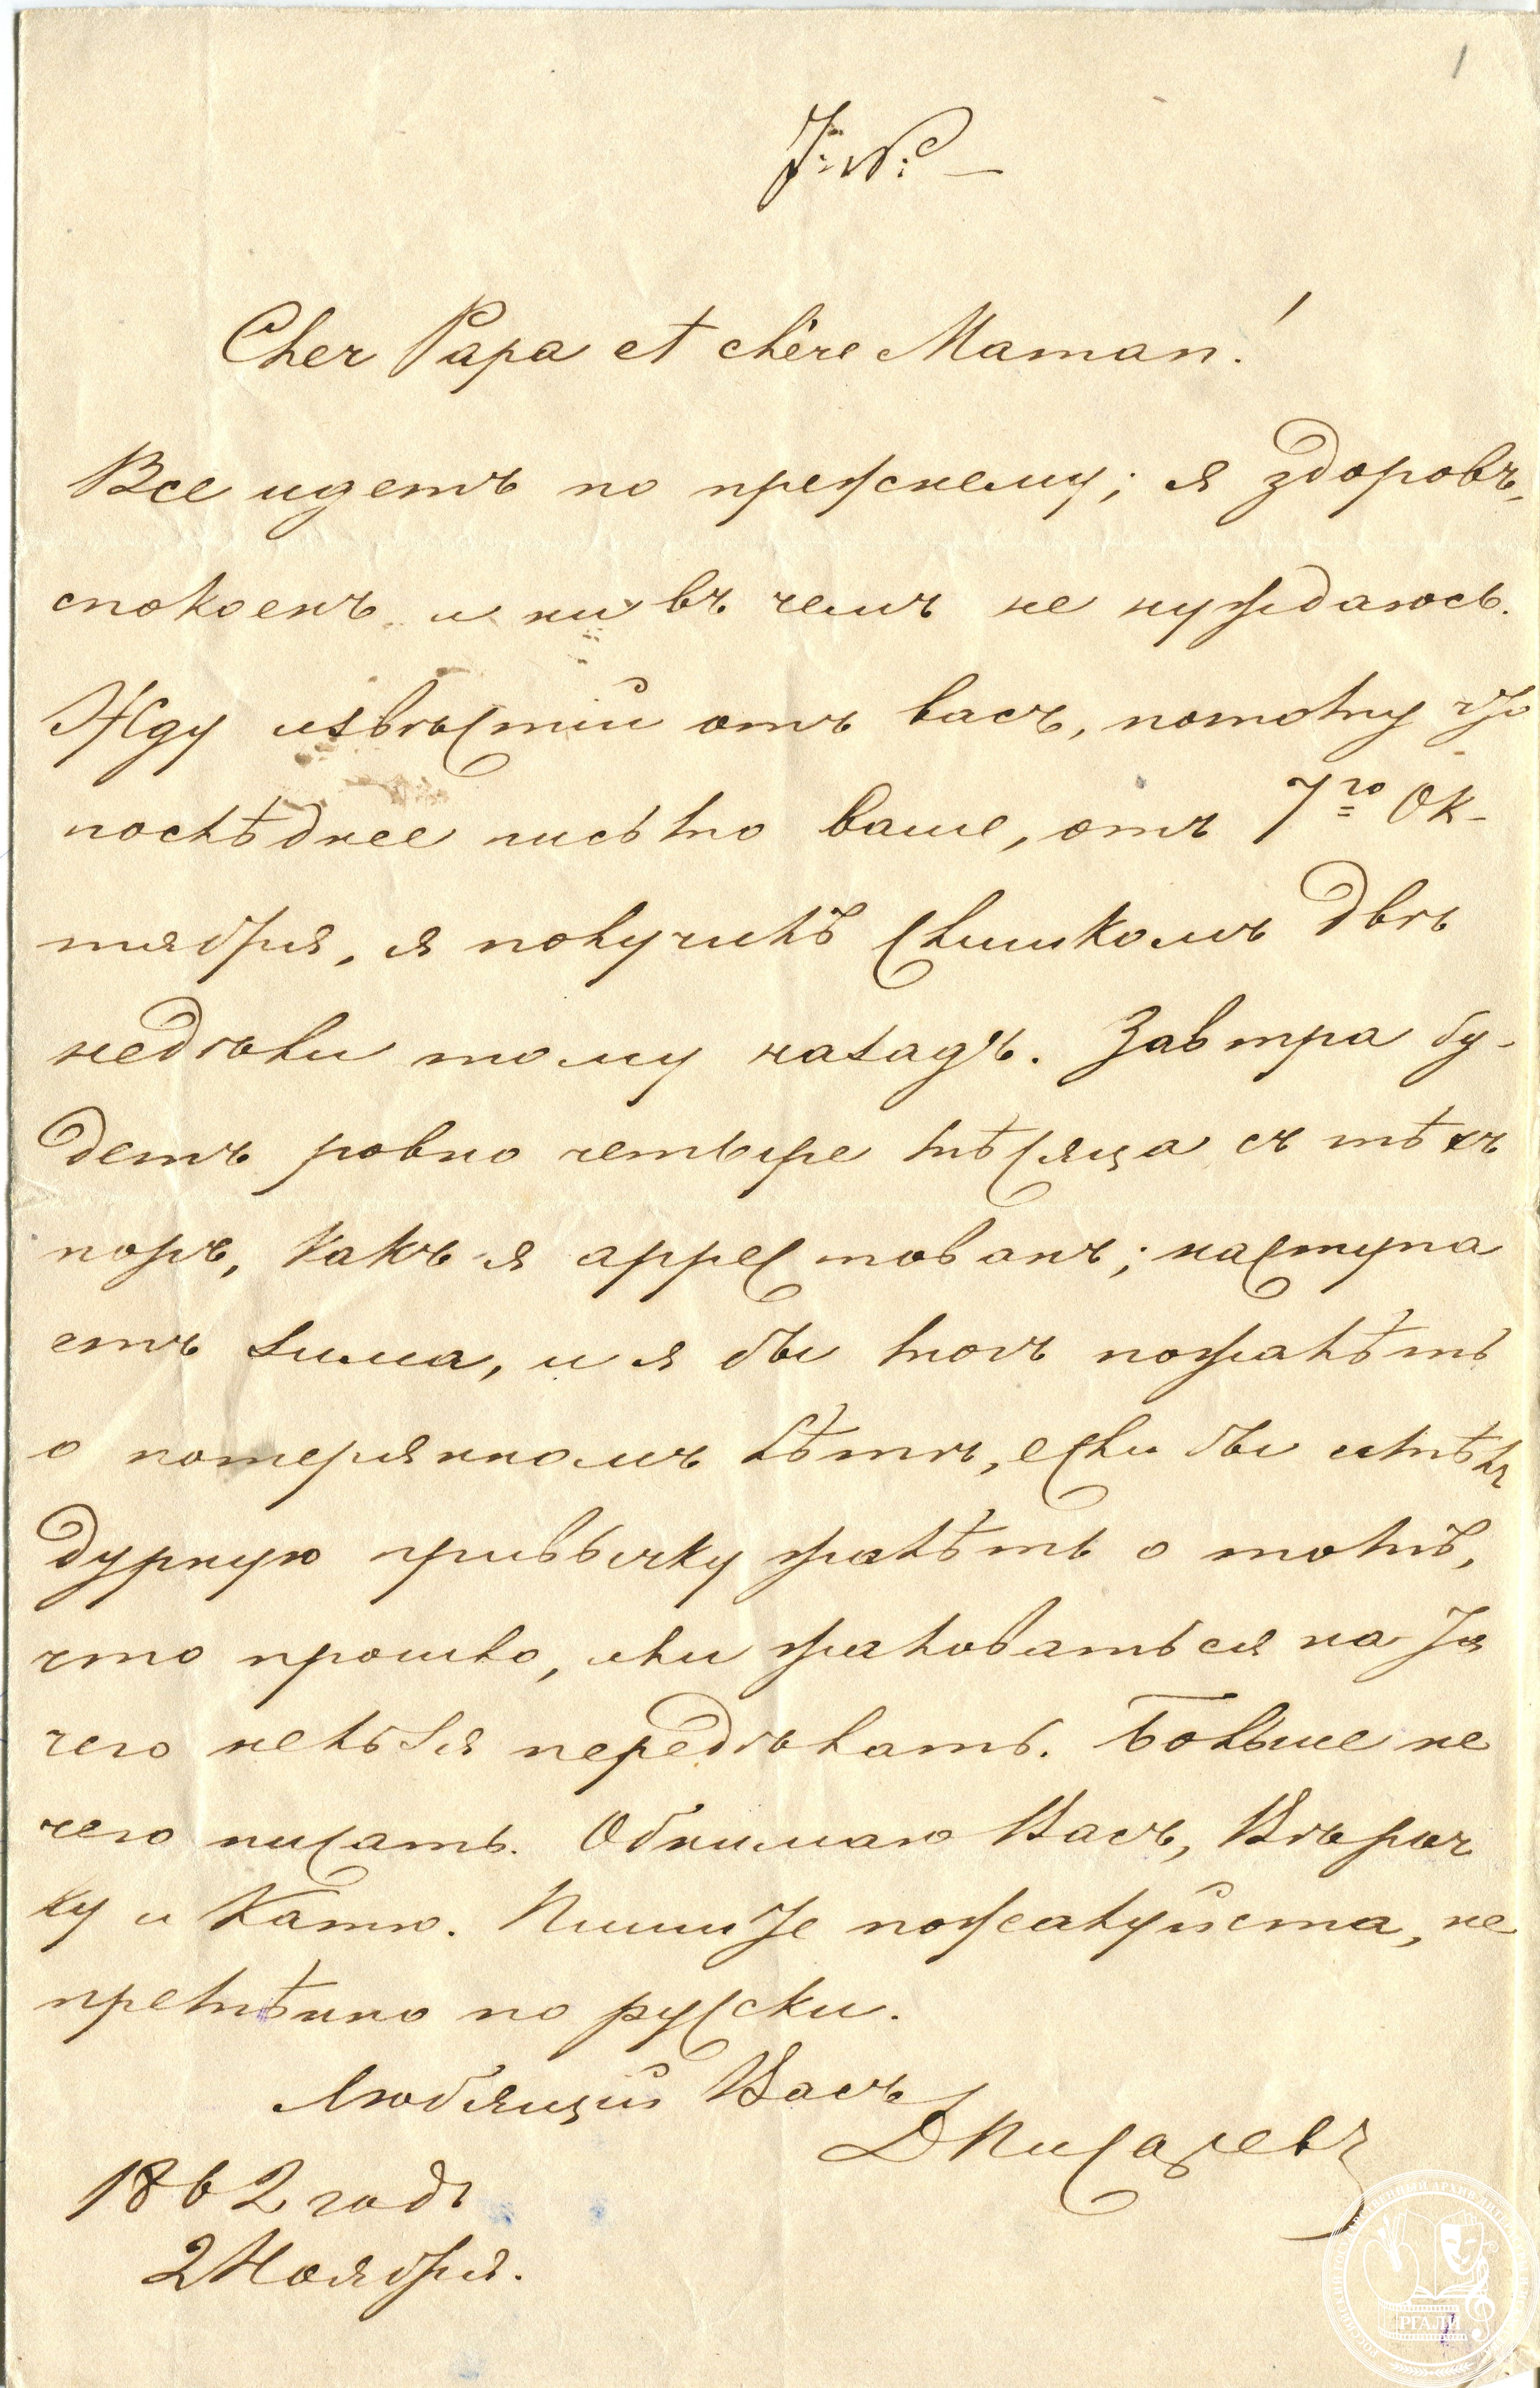 1
Cher Papa et chère Maman!
Все идетъ по прежнему; я здоровъ,
спокоенъ и ни въ чемъ не нуждаюсь.
Жду извѣстій отъ васъ, потому что
послѣднее письмо ваше, отъ 7го Ок-
тября, я получилъ слишкомъ двѣ
недѣли тому назадъ. Завтра бу-
детъ ровно четыре мѣсяца съ тѣхъ
поръ, какъ я аррестованъ; наступа
етъ зима, и я бы могъ пожалѣть
о потерянномъ лѣтѣ, если бы имѣлъ
дурную привычку жалѣть о томъ,
что прошло, или жаловаться на то
чего нельзя передѣлать. Больше не
чего писать. Обнимаю Васъ, Вѣроч
ку и Катю. Пишите пожалуйста, не
премѣнно по русски.
Любящій Васъ
ДПисаревъ
1862 годъ
2 Ноября.
РГАЛИ